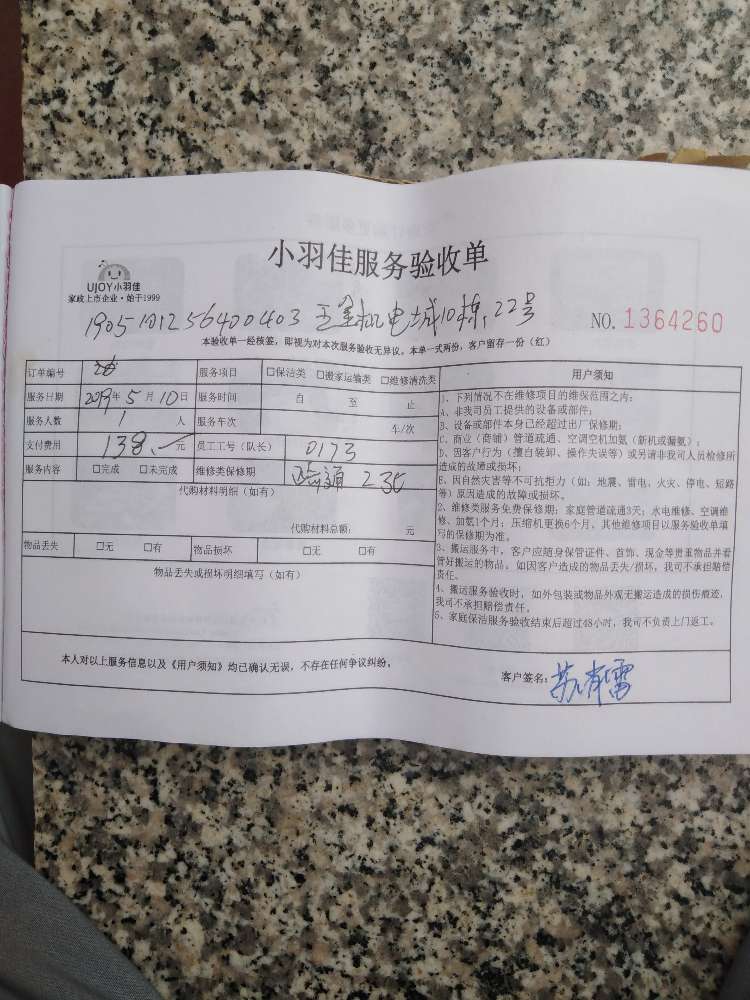 小羽佳服务验收单
UJOY小羽佳
家政上市企业·始于1999
1905101256400403 五金机电城10栋,22号
NO.1364260
本验收单一经核签,即视为对本次服务验收无异议。本单一式两份,客户留存一份(红)
订单编号 服务项目 □保洁类 □搬家运输类 □维修清洗类
服务日期 2019年5月10日 服务时间 自 至 止
服务人数 1 人 服务车次 车/次
支付费用 138 元 员工工号(队长) 0173
服务内容 □完成 □未完成 维修类保修期 疏通
代购材料明细(如有)
代购材料总额: 元
物品丢失 □无 □有 物品损坏 □无 □有
物品丢失或损坏明细填写(如有)
用户须知
1、下列情况不在维修项目的维保范围之内:
A、非我司员工提供的设备或部件;
B、设备或部件本身已经超过出厂保修期;
C、商业(商铺)管道疏通、空调空机加氨(新机或漏氨);
D、因客户行为(擅自装卸、操作失误等)或另请非我司人员检修所
造成的故障或损坏;
E、因自然灾害等不可抗拒力(如:地震、雷电、火灾、停电、短路
等)原因造成的故障或损坏。
2、维修类服务免费保修期:家庭管道疏通3天;水电维修、空调维
修、加氨1个月;压缩机更换6个月,其他维修项目以服务验收单填
写的保修期为准。
3、搬运服务中,客户应随身保管证件、首饰、现金等贵重物品并看
管好搬运的物品。如因客户造成的物品丢失/损坏,我司不承担赔偿
责任。
4、搬运服务验收时,如外包装或物品外观无搬运造成的损伤痕迹,
我司不承担赔偿责任。
5、家庭保洁服务验收结束后超过48小时,我司不负责上门返工。
本人对以上服务信息以及《用户须知》均已确认无误,不存在任何争议纠纷。
客户签名: